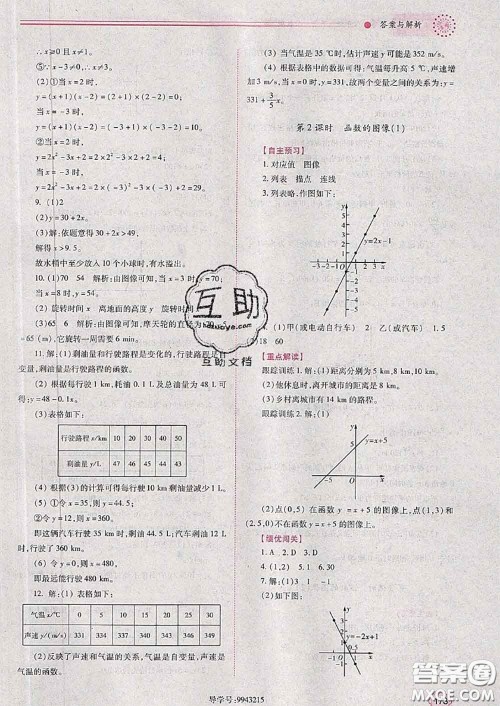 答案与解析
∴x≥0且x≠1.
⑤∵x-3≠0,∴x≠3.
(2)①当x=2时,
y=(x+2)(x-2)=(2+2)×(2-2)=0.
当x=-3时,
y=(x+2)(x-2)=(-3+2)×(-3-2)=5.
②当x=2时,
y=2x²-3x+2=2×2²-3×2+2=4.
当x=-3时,
y=2x²-3x+2=2×(-3)²-3×(-3)+2=29.
9.(1)2
(2)y=30+2x.
(3)解:依题意得30+2x>49,
解得x>9.5.
故水桶中至少放入10个小球时,有水溢出.
10.(1)70 54 解析:由图像可知,当x=3时,y=70;
当x=8时,y=54.
(2)旋转时间x 高地面的高度y 旋转时间
(3)65 6 解析:由图像得,摩天轮的直径为
=65(m),它旋转一周需要6 min.
11.解:(1)剩油量和行驶路程是变化的,行驶路程是自
变量,剩油量是行驶路程的函数.
(2)根据每行驶1 km,耗油0.1 L及总油量为48 L可
得:y=48-0.1x.
(3)如表格:
行驶路程x/km 10 20 30 40 50
剩油量y/L 47 46 45 44 43
(4)根据(3)的计算可得每行驶10 km剩油量减少
1 L.
(5)①令x=35,得y=44.5.
即这辆汽车行驶35 km时,剩油44.5 L;汽车剩油
12 L时,行驶了360 km.
②令y=0,得x=480.
即最远能行驶480 km.
12.解:(1)表格如下:
气温x/℃ 0 5 10 15 20 25 30
声速y/(m/s) 331 334 337 340 343 346 349
(2)反映了声速和气温的关系,气温是自变量,声速是
气温的函数.
(3)当气温是35 ℃时,估计声速y可能是352 m/s.
(4)根据表格中的数据可得:气温每升高5 ℃,声速增
加3 m/s,当x=0时,y=331,故两个变量之间的关系为:y=
331+3/5x.
第2课时 函数的图像(1)
【自主预习】
1.对应值 图像
2.列表 描点 连线
3.列表略,作图如下:
y=2x-1
(1)甲(或电动自行车) 2 乙(或汽车) 1
(2)18 90
【重点解读】
跟踪训练1.解:(1)距离分别为5 km,8 km,10 km.
(2)他休息时,离出发地8 km.
(3)乡村离城市有10 km的路程.
跟踪训练2.解:(1)如图:
y=x+5
(2)点(0,5)在函数y=x+5的图像上,点(1,0)和
(2.5,0)不在函数y=x+5的图像上.
【培优闯关】
1.A 2.D 3.D
4.(1,2) 5.1.5 6.30
7.解:(1)
如图所示:
y=-2x+1
互助
互助文档
导学号:9943215
173
答案圈
MXQE.COM